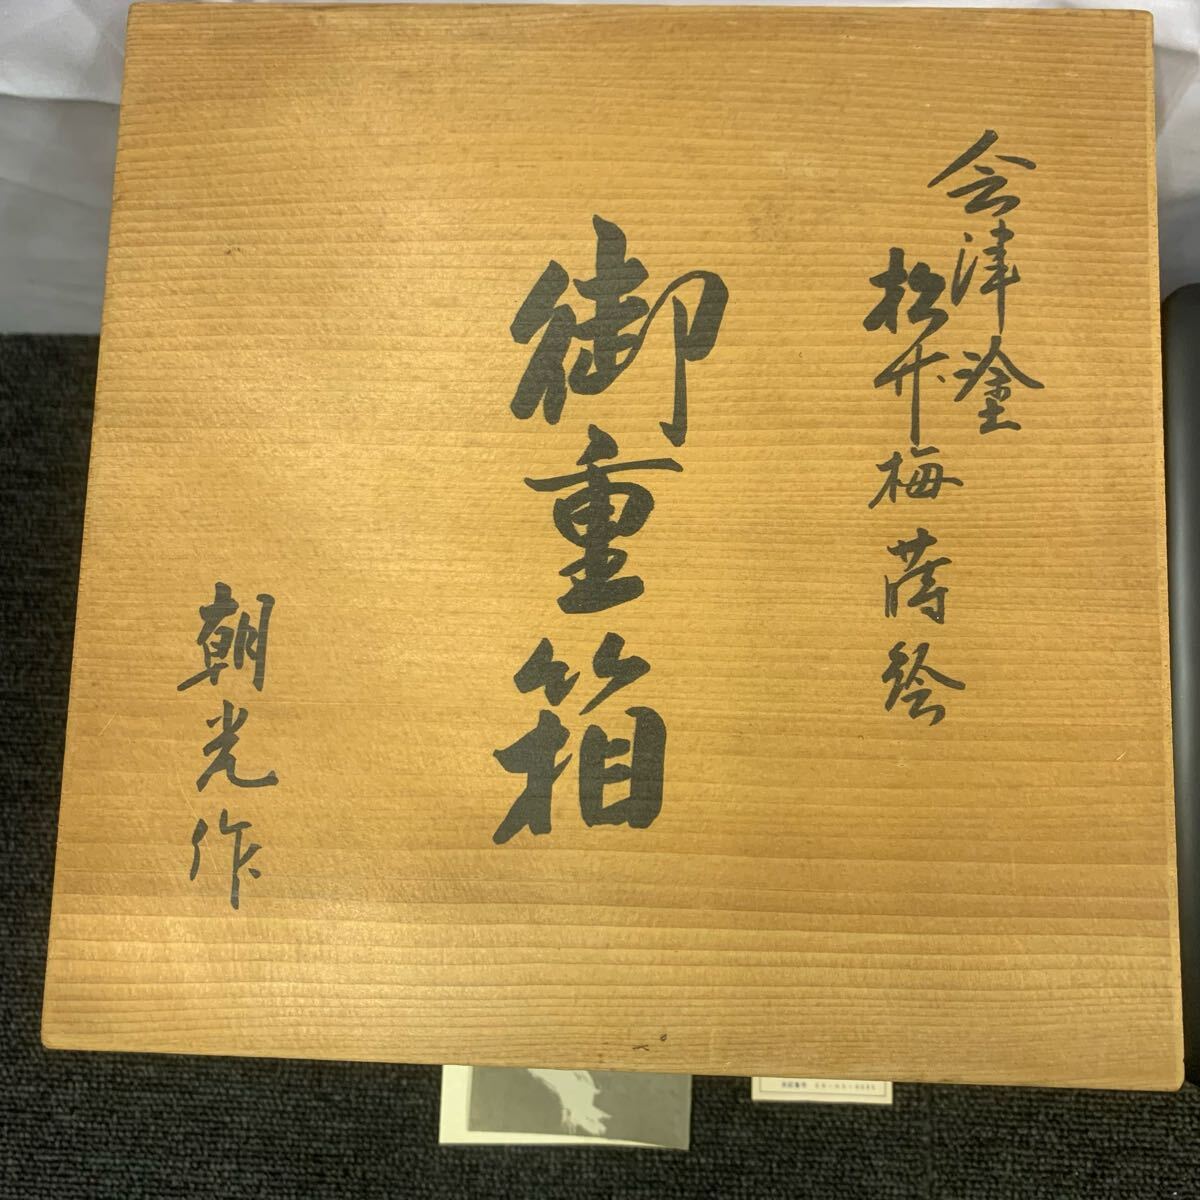 会津塗
松竹梅蒔絵
御重箱
朝光作